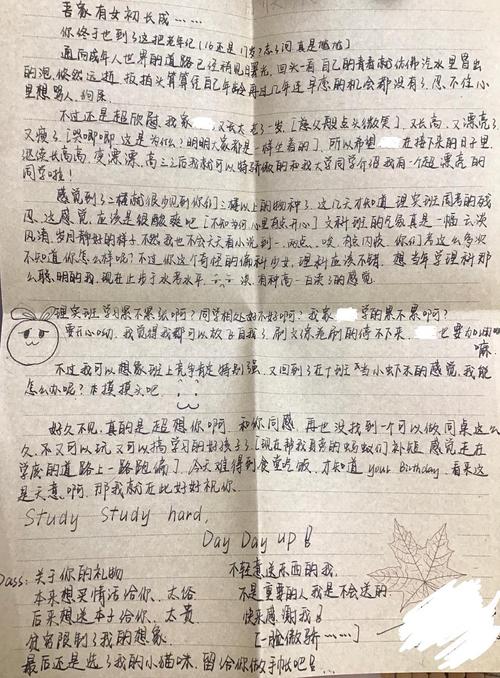 吾家有女初长成……
你终于也到了这把老年纪(16还是17岁?忘了问真是尴尬)
通向成年人世界的道路已经稍见日暮光,回头一看自己的青春就仿佛汽水里冒出
的泡,悠然远逝,扳指头算算凭自己年龄会再过几年连早恋的机会都没有了,忍不住心
里想骂人,狗屎
不过还是超欣慰,我家 又长大了一岁[慈父般点头微笑]又长高,又漂亮了
又瘦了[哭唧唧 这是为什么?明明大家都是一样坐着的],所以希望 在接下来的日子里
继续长高高,变漂漂,高三之后我就可以特骄傲的和我大学同学介绍我有个超漂亮的
同学啦!
感觉到了二楼就很少见到你们三楼以上的物种了,这几天才知道,理实班周考的战
况,这感觉应该是很酸爽吧[不知为何心里有点开心]文科班的气氛真是一幅云淡
风清,岁月静好的样子,不然我也不会天天看小说到一、两点、唉,有点内疚,你们考这么多次
不知道你怎么样呢?不过你这个奇怪的偏科少女,理科应该不错,想当年学理科那
么聪明的我,现在止步于水考水平,唉,有种高一白读了的感觉
理实班学习累不累啊?同学相处好不好啊?我家 学的累不累啊?
要开心呦,我觉得我都可以放飞自我了,刷文综光刷的停不下来, 也要加油呦
嘛
不过我可以想象班上竞争肯定特别强,又回到了在十班当小虾米的感觉,我能
怎么办呢?木摸摸头吧
好久不见,真的是超想你啊,和你同感,再也没找到一个可以做同桌这么
久,不又可以玩又可以搞学习的好孩子了[现在帮我负责的蚂蚁们补短,感觉走在
学废的道路上一路跑偏],今天难得到食堂吃饭,才知道 your Birthday,看来这
是天意啊,那我就在此好好祝你
Study Study hard,
Day Day up!
Pass:关于你的礼物
本来想买情话给你、太俗
后来想送本子给你、太贵
贫穷限制了我的想象
最后还是选了我的小猫咪,留给你做手帐吧!
不轻意送东西的我,
不是重要的人我是不会送的
快来感谢我!
[一脸傲骄……]